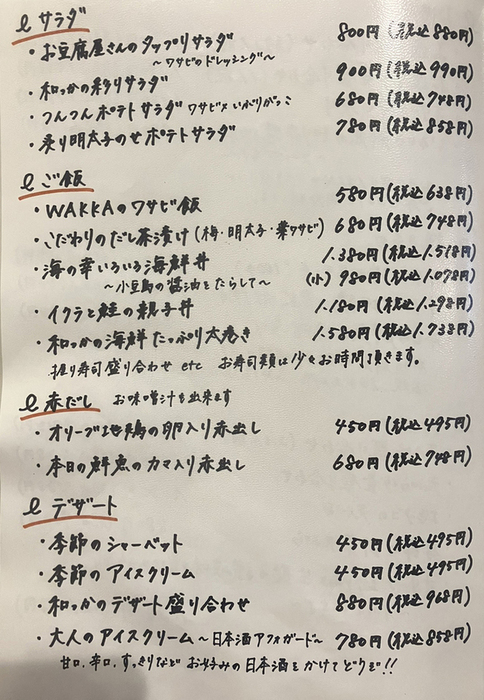 サラダ
・お豆腐屋さんのタップリサラダ 800円(税込880円)
〜ワサビのドレッシング〜
・和っかの彩りサラダ 900円(税込990円)
・つんつんポテトサラダ ワサビ×いぶりがっこ 680円(税込748円)
・炙り明太子のせポテトサラダ 780円(税込858円)
ご飯
・WAKKAのワサビ飯 580円(税込638円)
・こだわりのだし茶漬け(梅・明太子・葉ワサビ) 680円(税込748円)
・海の幸いろいろ海鮮丼 1.380円(税込1.518円)
〜小豆島の醤油をたらして〜 (小) 980円(税込1.078円)
・イクラと鮭の親子丼 1.180円(税込1.298円)
・和っかの海鮮たっぷり太巻き 1.580円(税込1.738円)
握り寿司盛り合わせ etc お寿司類は少々お時間頂きます。
赤だし お味噌汁も出来ます
・オリーブ地鶏の卵入り赤出し 450円(税込495円)
・本日の鮮魚のカマ入り赤出し 680円(税込748円)
デザート
・季節のシャーベット 450円(税込495円)
・季節のアイスクリーム 450円(税込495円)
・和っかのデザート盛り合わせ 880円(税込968円)
・大人のアイスクリーム〜日本酒アフォガード〜 780円(税込858円)
甘口、辛口、すっきりなど お好みの日本酒をかけてどうぞ!!